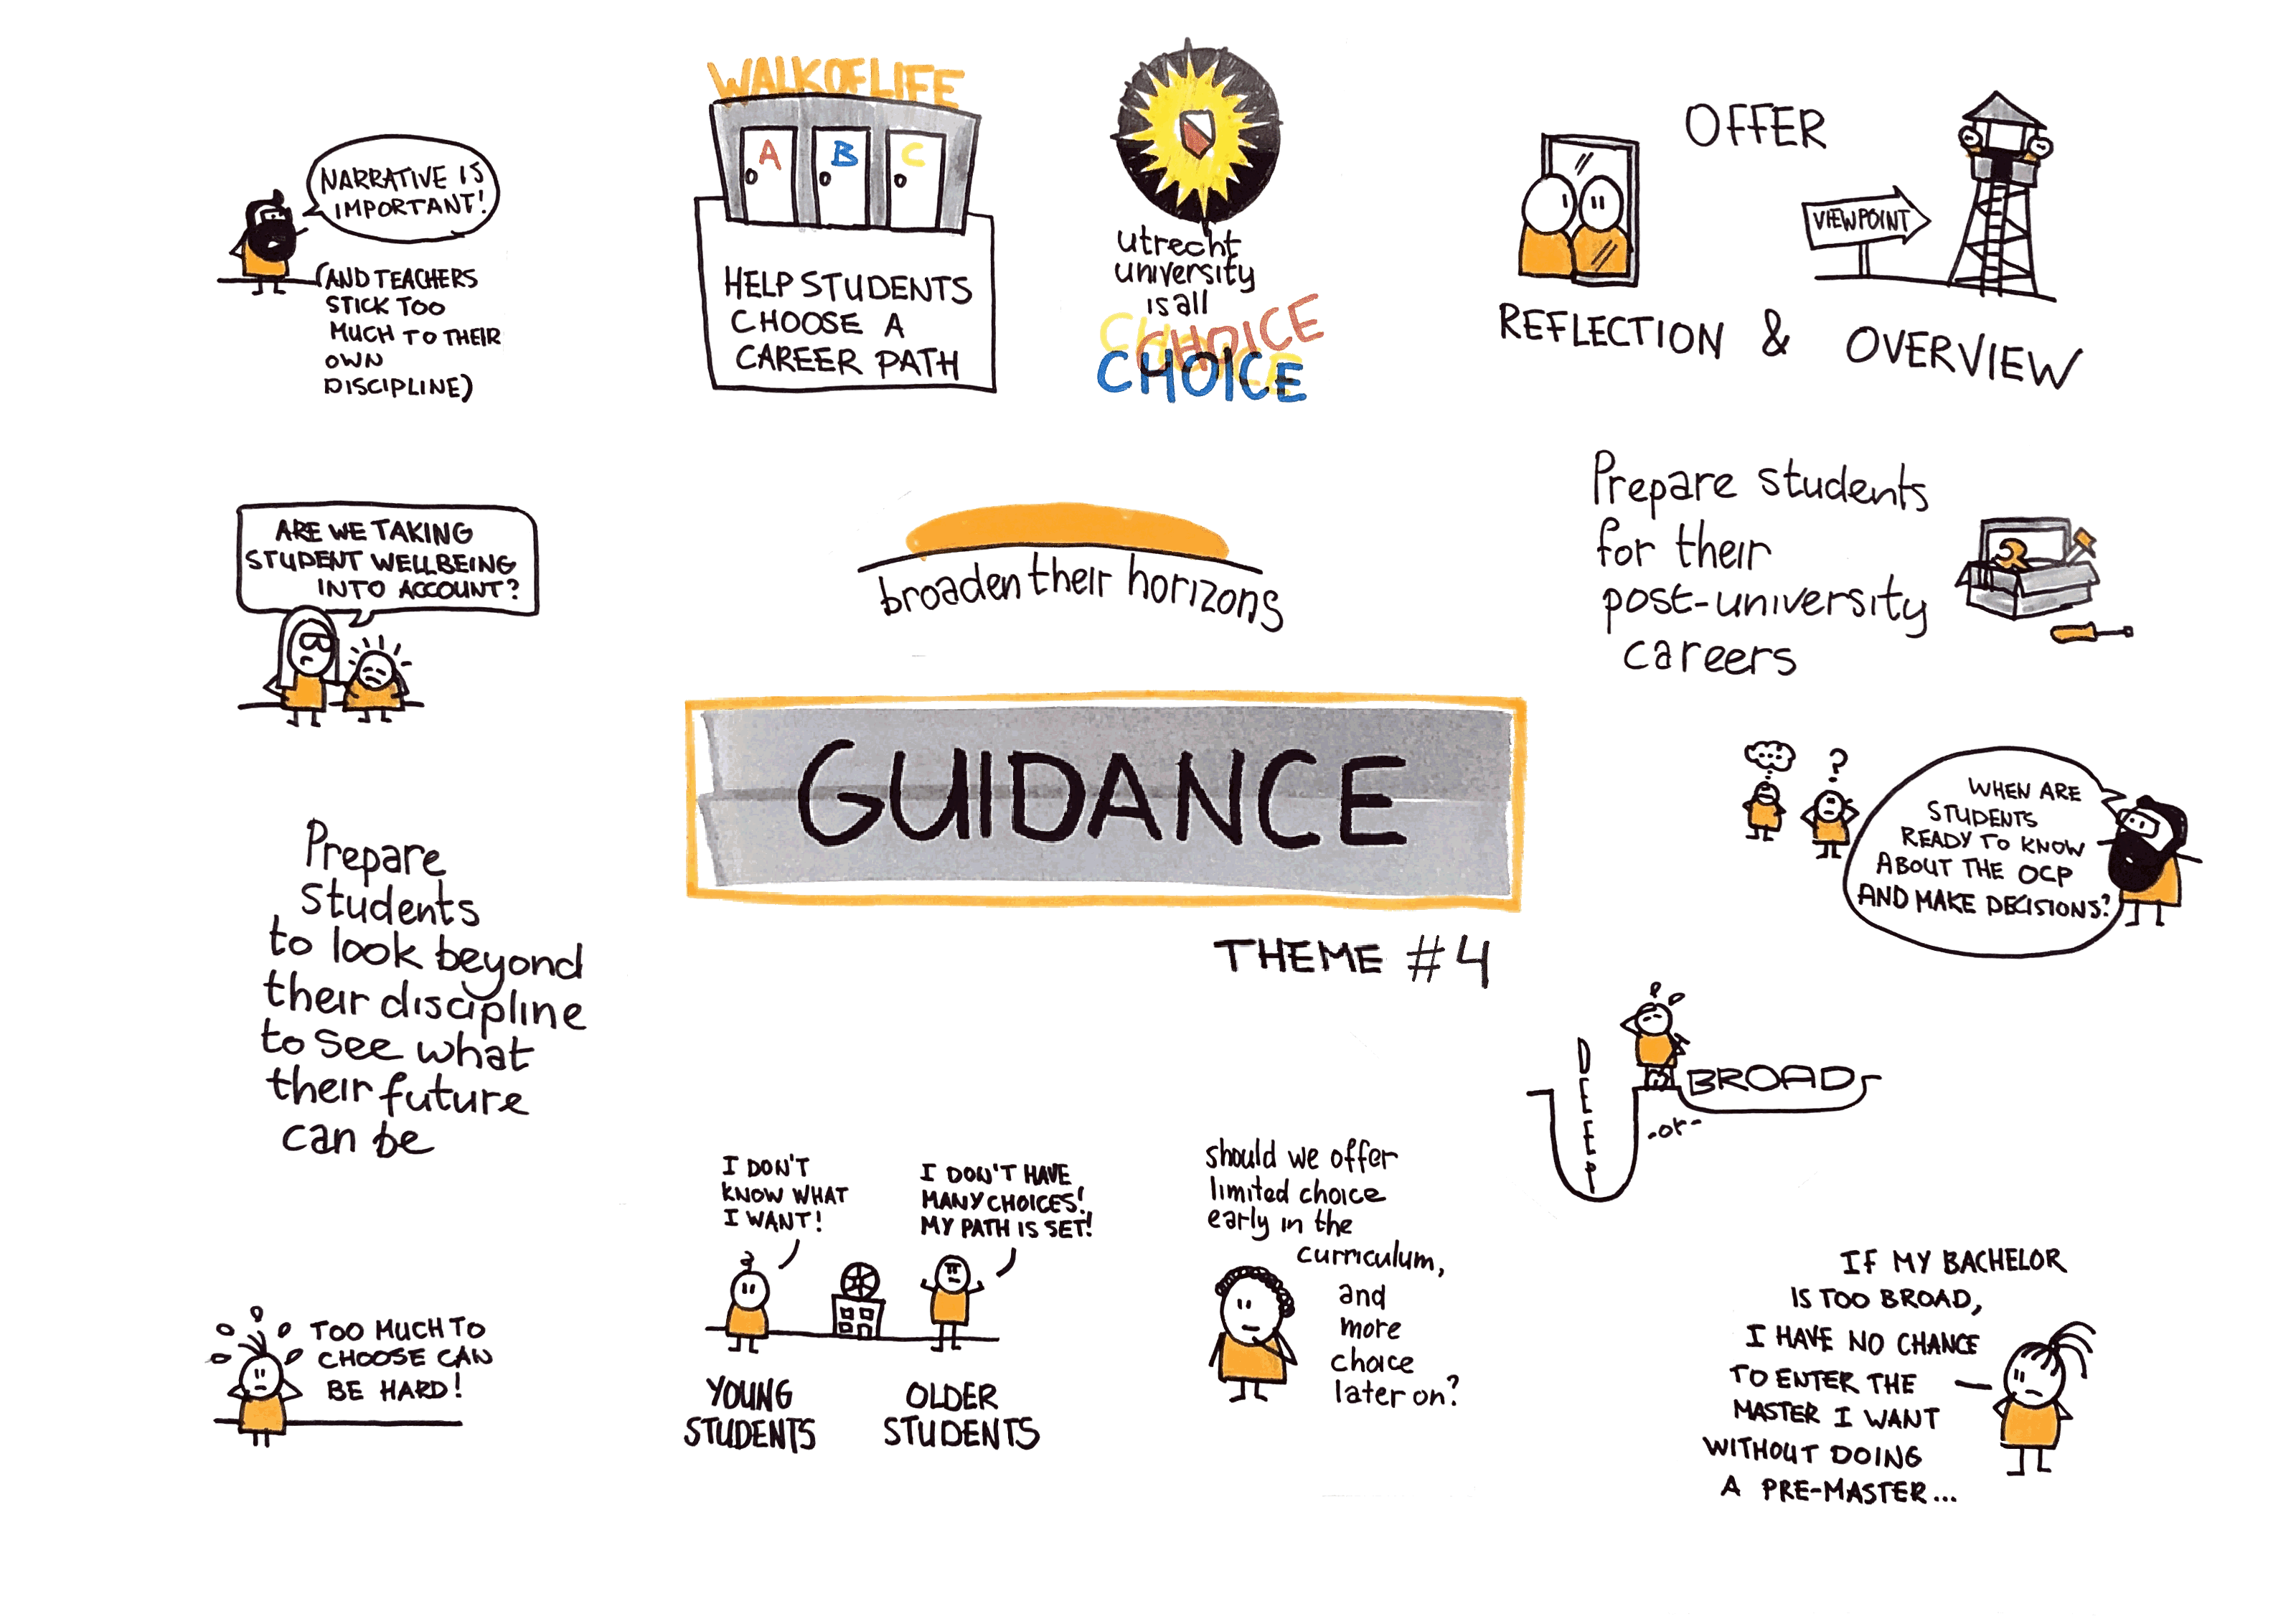 WALK OF LIFE
A B C
HELP STUDENTS
CHOOSE A
CAREER PATH
NARRATIVE IS
IMPORTANT!
(AND TEACHERS
STICK TOO
MUCH TO THEIR
OWN
DISCIPLINE)
utrecht
university
is all
CHOICE
CHOICE
CHOICE
OFFER
VIEWPOINT
REFLECTION & OVERVIEW
ARE WE TAKING
STUDENT WELLBEING
INTO ACCOUNT?
broaden their horizons
Prepare students
for their
post-university
careers
GUIDANCE
THEME #4
?
WHEN ARE
STUDENTS
READY TO KNOW
ABOUT THE OCP
AND MAKE DECISIONS?
Prepare
students
to look beyond
their discipline
to see what
their future
can be
DEEP
-or-
BROAD
TOO MUCH TO
CHOOSE CAN
BE HARD!
I DON'T
KNOW WHAT
I WANT!
I DON'T HAVE
MANY CHOICES!
MY PATH IS SET!
YOUNG
STUDENTS
OLDER
STUDENTS
should we offer
limited choice
early in the
curriculum,
and
more
choice
later on?
IF MY BACHELOR
IS TOO BROAD,
I HAVE NO CHANCE
TO ENTER THE
MASTER I WANT
WITHOUT DOING
A PRE-MASTER...